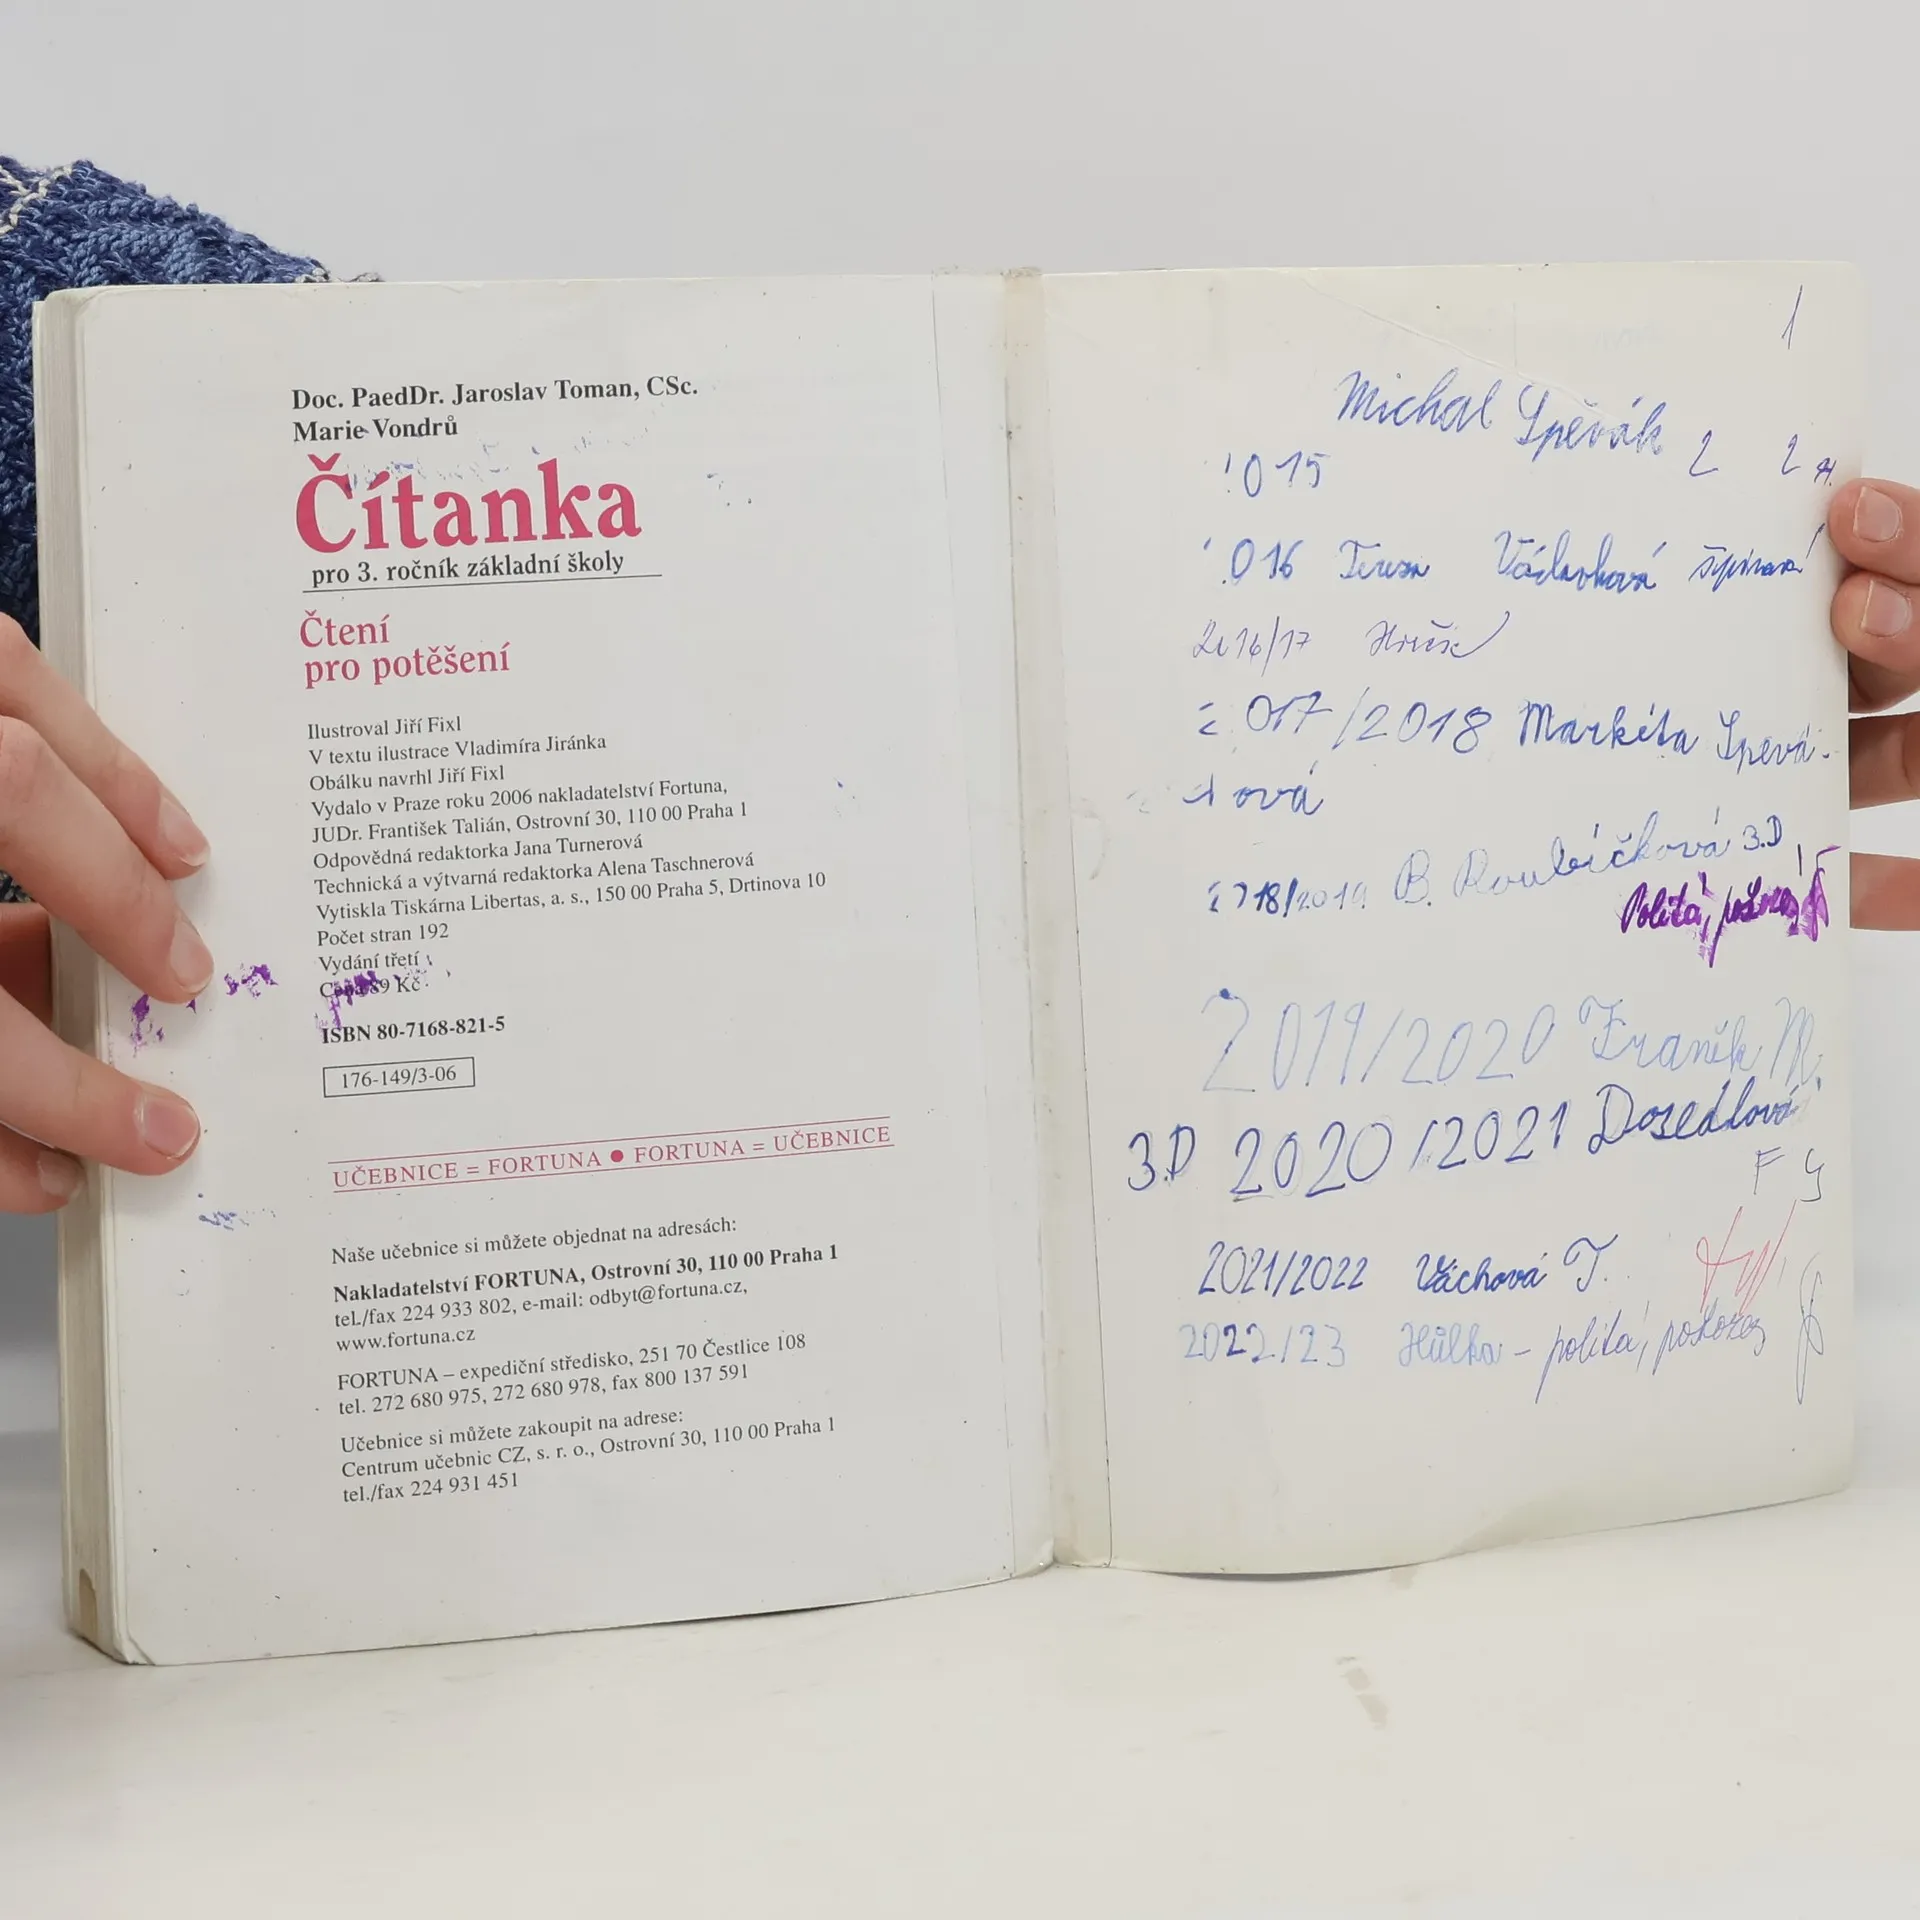 Doc. PaedDr. Jaroslav Toman, CSc.
Marie Vondrů
Čítanka
pro 3. ročník základní školy
Čtení
pro potěšení
Ilustroval Jiří Fixl
V textu ilustrace Vladimíra Jiránka
Obálku navrhl Jiří Fixl
Vydalo v Praze roku 2006 nakladatelství Fortuna,
JUDr. František Talián, Ostrovní 30, 110 00 Praha 1
Odpovědná redaktorka Jana Turnerová
Technická a výtvarná redaktorka Alena Taschnerová
Vytiskla Tiskárna Libertas, a. s., 150 00 Praha 5, Drtinova 10
Počet stran 192
Vydání třetí
Cena 89 Kč
ISBN 80-7168-821-5
176-149/3-06
UČEBNICE = FORTUNA ● FORTUNA = UČEBNICE
Naše učebnice si můžete objednat na adresách:
Nakladatelství FORTUNA, Ostrovní 30, 110 00 Praha 1
tel./fax 224 933 802, e-mail: odbyt@fortuna.cz,
www.fortuna.cz
FORTUNA – expediční středisko, 251 70 Čestlice 108
tel. 272 680 975, 272 680 978, fax 800 137 591
Učebnice si můžete zakoupit na adrese:
Centrum učebnic CZ, s. r. o., Ostrovní 30, 110 00 Praha 1
tel./fax 224 931 451
1
Michal Spěvák 2 2
015
016 Václavková
2016/17
017/2018 Markéta Spevá-
ová
18/2019 B. Roubíčková 3.D
Politá,
2019/2020 Franěk M.
3.D 2020/2021 Dosedlová
F
2021/2022 Váchová T.
2022/23 Hůlka – politá,